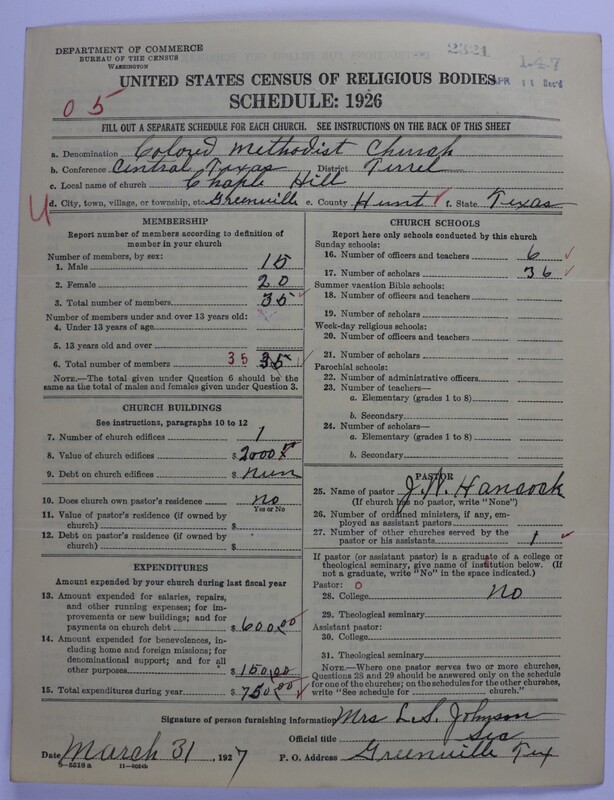 DEPARTMENT OF COMMERCE
BUREAU OF THE CENSUS
WASHINGTON
2321
1-4-7
APR 11 Rec'd
UNITED STATES CENSUS OF RELIGIOUS BODIES
SCHEDULE: 1926
05
FILL OUT A SEPARATE SCHEDULE FOR EACH CHURCH. SEE INSTRUCTIONS ON THE BACK OF THIS SHEET
a. Denomination Colored Methodist Church
b. Conference Central Texas District Terrel
c. Local name of church Chaple Hill
U d. City, town, village, or township, etc Greenville e. County Hunt f. State Texas
MEMBERSHIP
Report number of members according to definition of
member in your church
Number of members, by sex:
1. Male 15
2. Female 20
3. Total number of members 35
Number of members under and over 13 years old:
4. Under 13 years of age
5. 13 years old and over
6. Total number of members 35 35
NOTE.—The total given under Question 6 should be the
same as the total of males and females given under Question 3.
CHURCH BUILDINGS
See instructions, paragraphs 10 to 12
7. Number of church edifices 1
8. Value of church edifices $ 2000
9. Debt on church edifices $ nun
10. Does church own pastor's residence no
Yes or No
11. Value of pastor's residence (if owned by
church) $
12. Debt on pastor's residence (if owned by
church) $
EXPENDITURES
Amount expended by your church during last fiscal year
13. Amount expended for salaries, repairs,
and other running expenses; for im-
provements or new buildings; and for
payments on church debt $ 600.00
14. Amount expended for benevolences, in-
cluding home and foreign missions; for
denominational support; and for all
other purposes $ 150.00
15. Total expenditures during year $ 750.00
CHURCH SCHOOLS
Report here only schools conducted by this church
Sunday schools:
16. Number of officers and teachers 6
17. Number of scholars 36
Summer vacation Bible schools:
18. Number of officers and teachers
19. Number of scholars
Week-day religious schools:
20. Number of officers and teachers
21. Number of scholars
Parochial schools:
22. Number of administrative officers
23. Number of teachers—
a. Elementary (grades 1 to 8)
b. Secondary
24. Number of scholars—
a. Elementary (grades 1 to 8)
b. Secondary
PASTOR
25. Name of pastor J. N. Hancock
(If church has no pastor, write "None")
26. Number of ordained ministers, if any, em-
ployed as assistant pastors
27. Number of other churches served by the
pastor or his assistants 1
If pastor (or assistant pastor) is a graduate of a college or
theological seminary, give name of institution below. (If
not a graduate, write "No" in the space indicated.)
Pastor: 0
28. College no
29. Theological seminary
Assistant pastor:
30. College
31. Theological seminary
NOTE.—Where one pastor serves two or more churches,
Questions 28 and 29 should be answered only on the schedule
for one of the churches; on the schedules for the other churches,
write "See schedule for church."
Signature of person furnishing information Mrs L. S. Johnson
Official title Sec
Date March 31, 1927 P. O. Address Greenville Tex